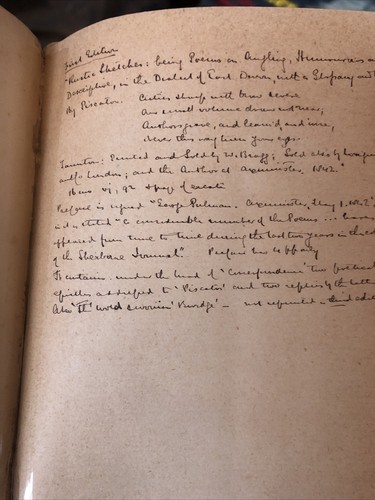 First Edition
"Rustic Sketches; being Poems on Angling, Humourous and
Descriptive, in the Dialect of East Devon, with a Glossary and
By Piscator.
Critics sharp with brow severe
our small volume draw not near,
Authors grave, and learn'd and wise,
never this way turn your eyes
Taunton: Printed and Sold by W. Bragg; Sold also by Longman
and Co London; and the Author at Axminster. 1842."
16mo vi, 92 + page of errata
Preface is signed "George Pulman. Axminster, May 1. 1842",
it is stated "a considerable number of the Poems ... have
appeared from time to time during the last two years in the
of the Sherborne Journal." Preface has
It contains under the head of 'Correspondence' two poetical
epistles addressed to 'Piscator' and two replies by the latter
Also 'Tha wold' - not repeated in third